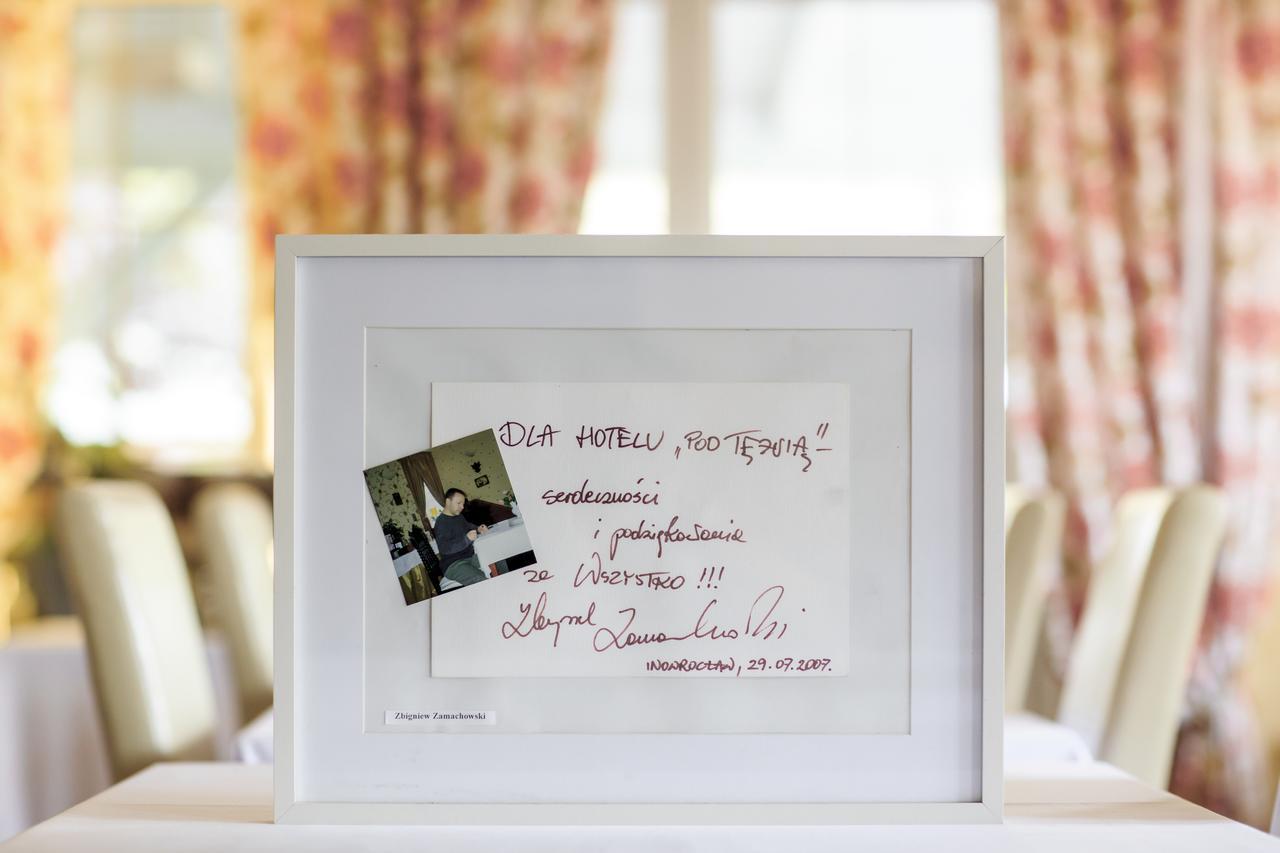 DLA HOTELU „POD TĘŻNIĄ” –
serdeczności
i podziękowania
za WSZYSTKO !!!
Zbyszek Zamachowski
INOWROCŁAW, 29.07.2007.
Zbigniew Zamachowski